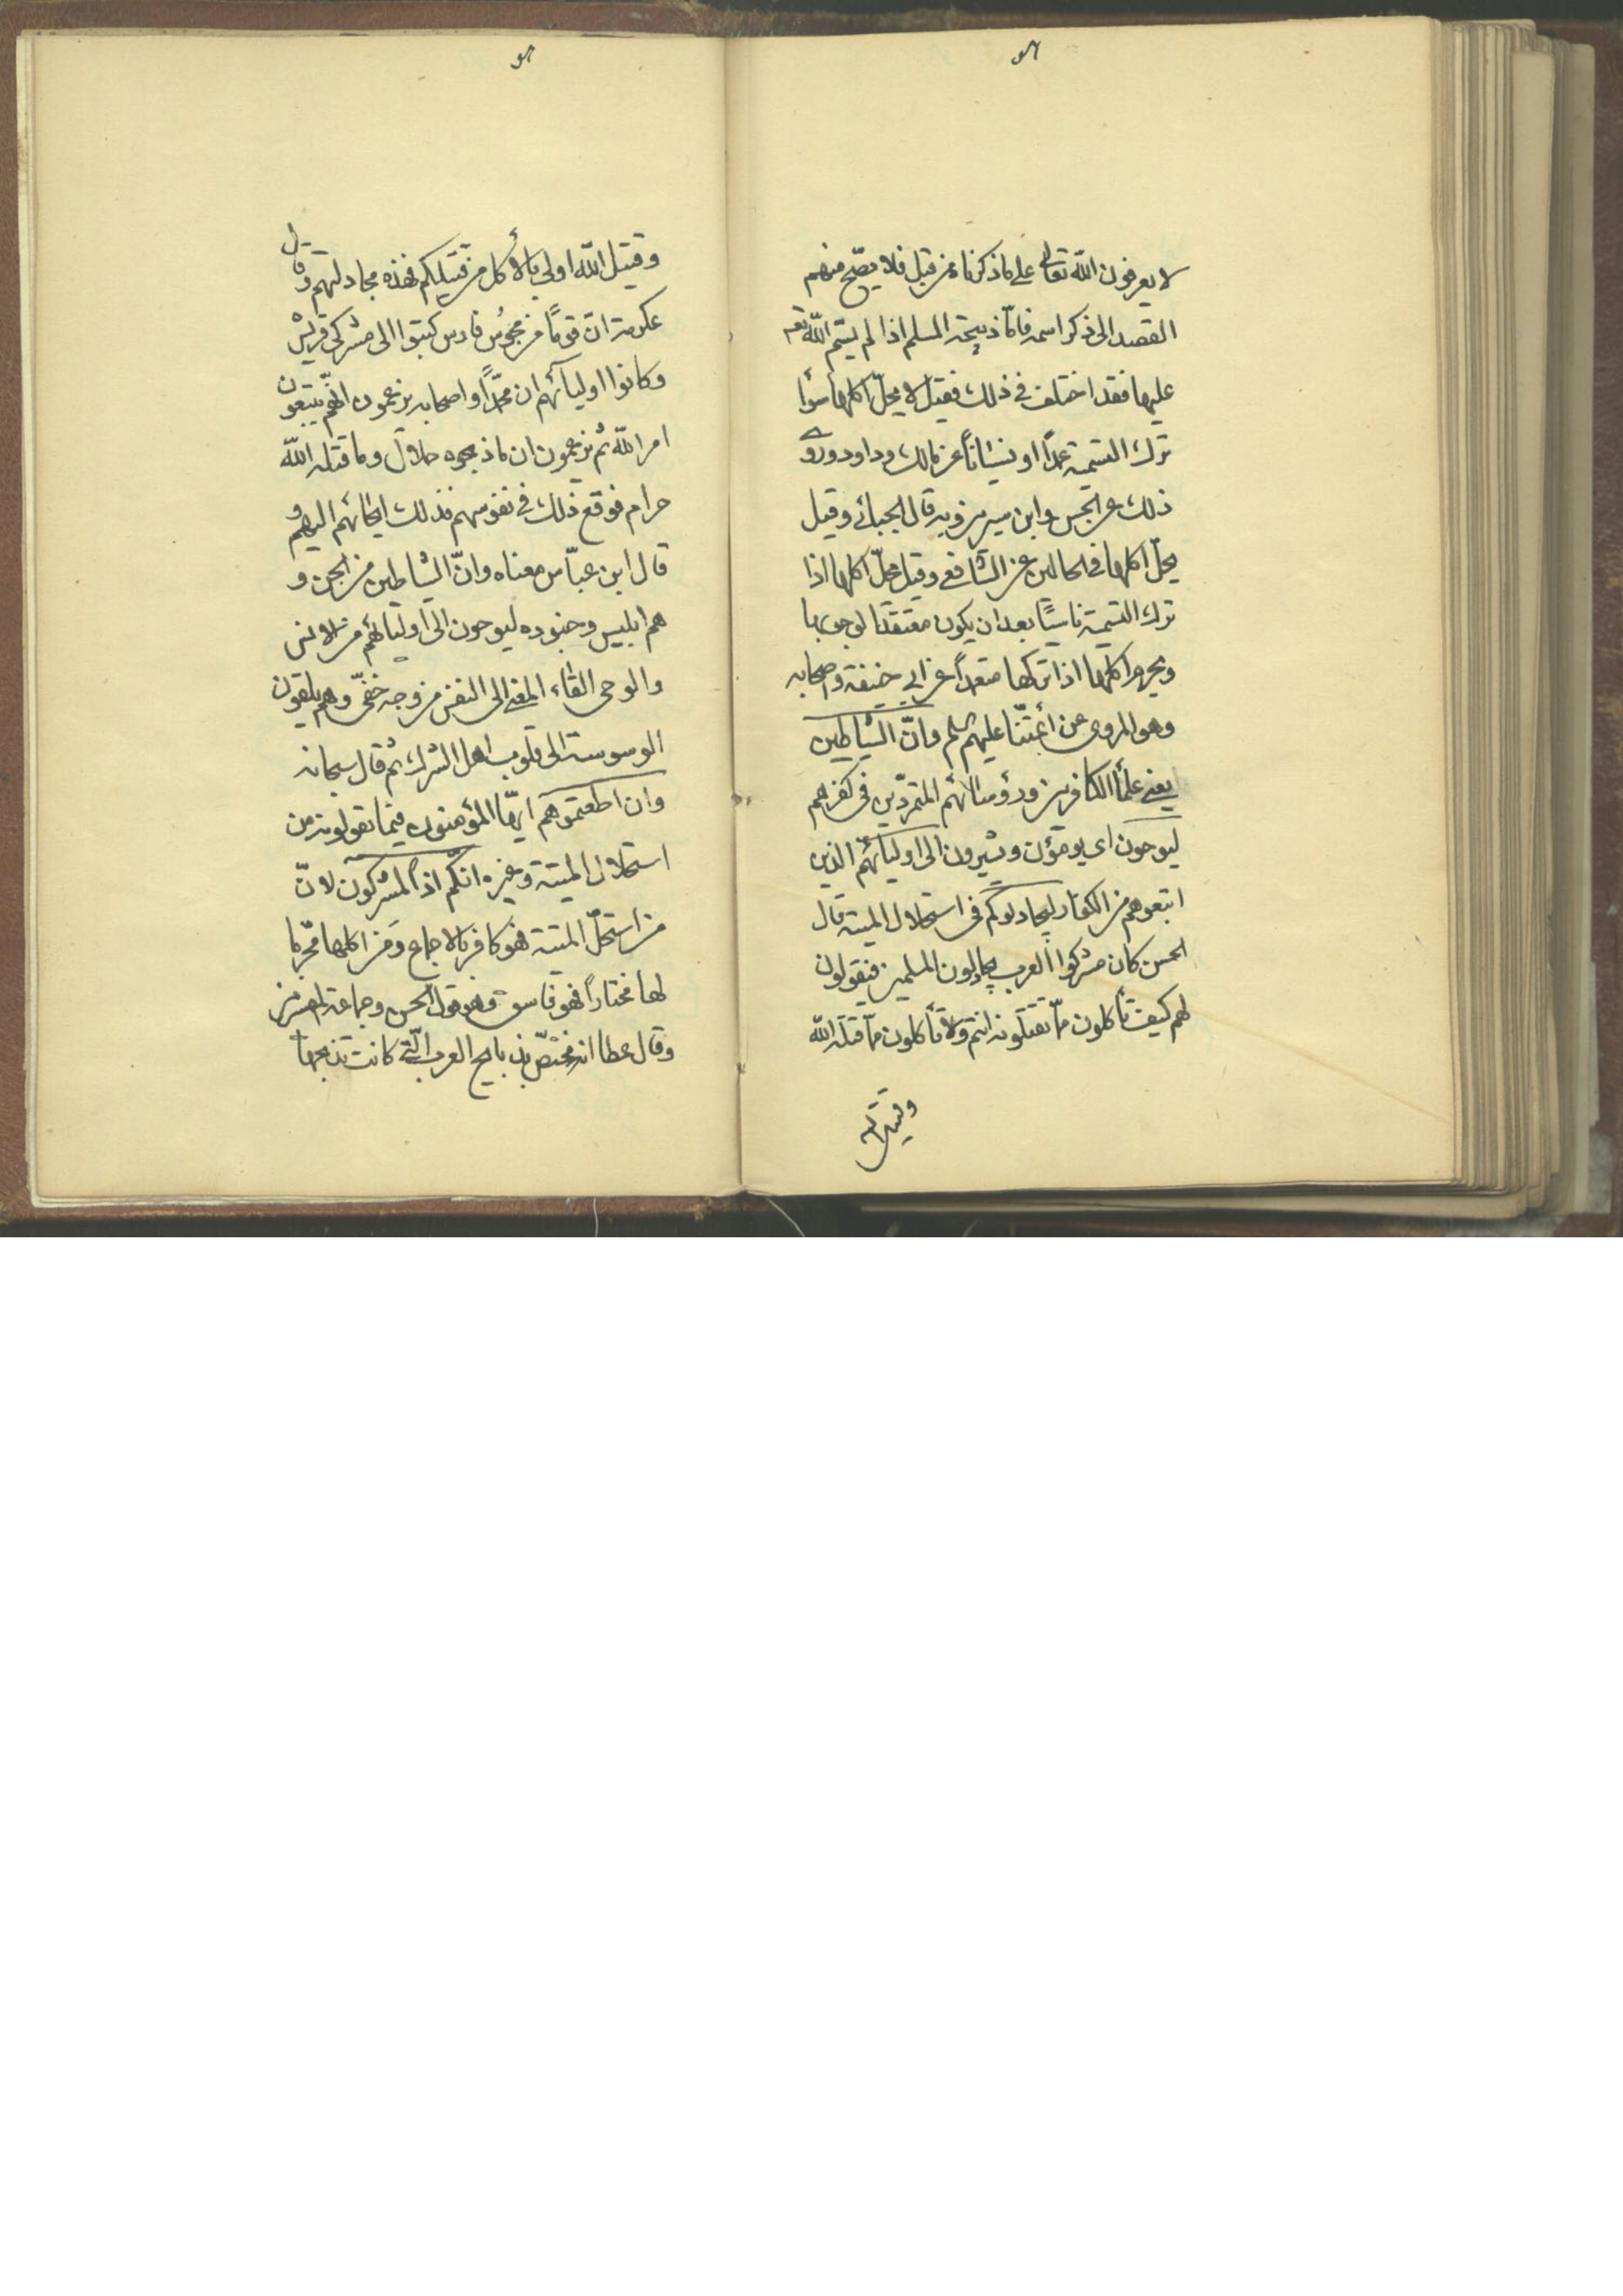 لا يعرفون الله تعالى على ما ذكرناه من قبل فلا يصّح منهم
القصد الى ذكر اسمه فامّا ذبيحة المسلم اذا لم يسّم الله تعـ
عليها فقد اختلف فى ذلك فقيل لا يحلّ اكلها سوأ
ترك التسمية عمداً او نسياناً عن مالك وداود وروى
ذلك عن الحسن وابن سيرين وبه قال الجبائى وقيل
يحلّ اكلها فى الحالين عن الشافعى وقيل يحلّ اكلها اذا
ترك التسمية ناسيًا بعد ان يكون معتقدا لوجوبها
ويحرم اكلها اذا تركها متعمداً عن ابى حنيفة واصحابه
وهو المروى عن أئمّتنا عليهم السلم وانّ الشياطين
يعنى علمأ الكافرين ورؤسائهم المتمردّين فى كفرهم
ليوحون اى يومؤن ويشيرون الى اوليآئهم الذين
اتبعوهم من الكفار ليجادلوكم فى استحلال الميتة قال
الحسن كان مشركوا العرب يجادلون المسلمين فيقولون
لهم كيف تأكلون ممّا تقتلونه انتم ولا تأكلون ممّا قتله الله
وقتيل الله
وقتيل الله اولى بالأكل من قتيلكم فهذه مجادلتهم وقال
عكرمة انّ قومًا من مجوس فارس كتبوا الى مشركى قريش
وكانوا اوليآئهم ان محمّداً واصحابه يزعمون انّهم يتبعون
امر الله ثم يزعمون ان ما ذبحوه حلال وما قتله الله
حرام فوقع ذلك فى نفوسهم فذلك ايحائهم اليهم و
قال ابن عبّاس معناه وانّ الشياطين من الجن و
هم ابليس وجنوده ليوحون الى اوليائهم من الانس
والوحى القاء المعنى الى النفس من وجه خفّى وهم يلقون
الوسوسة الى قلوب اهل الشرك ثم قال سبحانه
وان اطعتموهم ايّها المؤمنون فيما يقولونه من
استحلال الميتة وغيره انّكم اذاً لمشركون لانّ
من استحلّ الميتة فهو كافر بالاجماع ومن اكلها محّرما
لها مختاراً فهو فاسق وهو قول الحسن وجماعة المفسرين
وقال عطا انه مختصّ بذبايح العرب الّتى كانت تذبحها